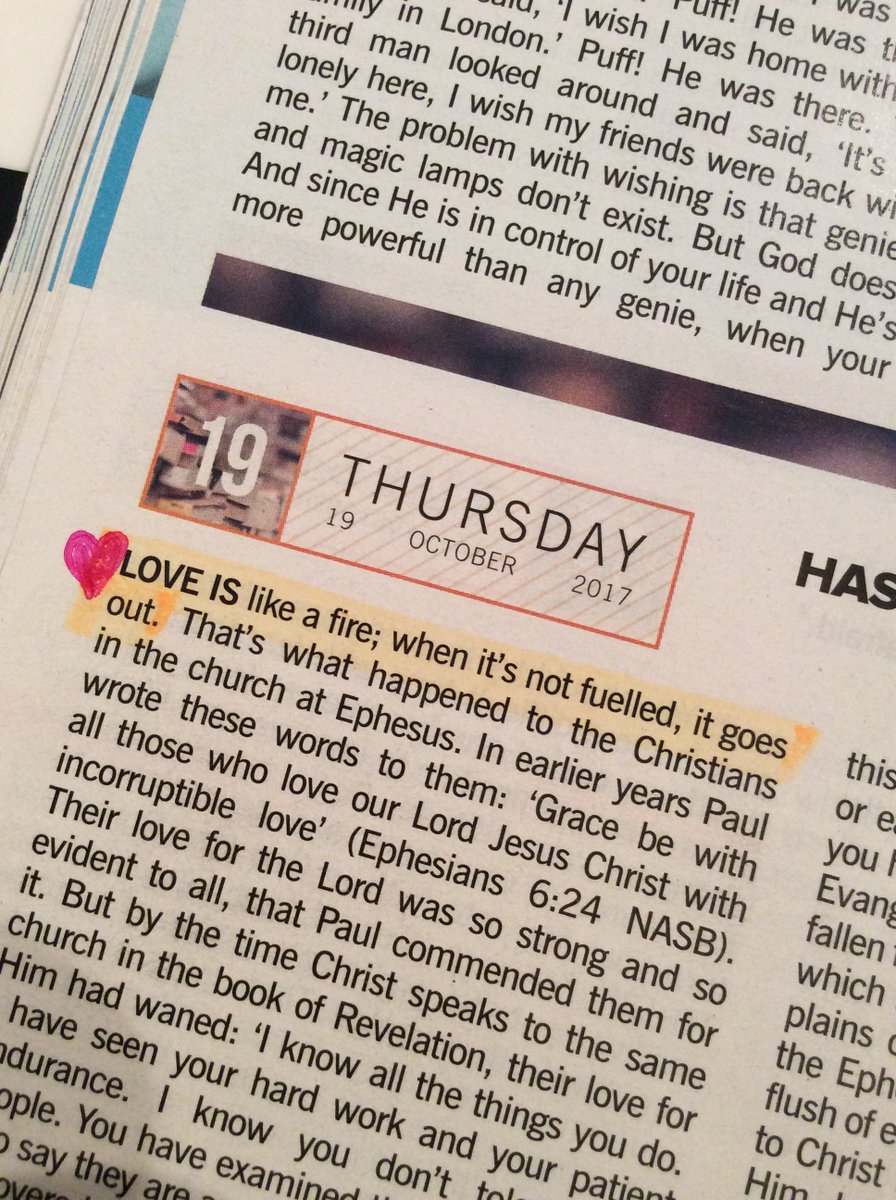 I was
Puff! He was
said, 'I wish I was home with
family in London.' Puff! He was there.
third man looked around and said, 'It's
lonely here, I wish my friends were back
me.' The problem with wishing is that genie
and magic lamps don't exist. But God does
And since He is in control of your life and He's
more powerful than any genie, when your
19
THURSDAY
19 OCTOBER 2017
HAS
LOVE IS like a fire; when it's not fuelled, it goes
out. That's what happened to the Christians
in the church at Ephesus. In earlier years Paul
wrote these words to them: 'Grace be with
all those who love our Lord Jesus Christ with
incorruptible love' (Ephesians 6:24 NASB).
Their love for the Lord was so strong and so
evident to all, that Paul commended them for
it. But by the time Christ speaks to the same
church in the book of Revelation, their love for
Him had waned: 'I know all the things you do.
have seen your hard work and your patient
ndurance. I know you don't
ople. You have examined
say they are
this
or
you
Evang
fallen
which
plains
the Eph
flush of
to Christ
Him